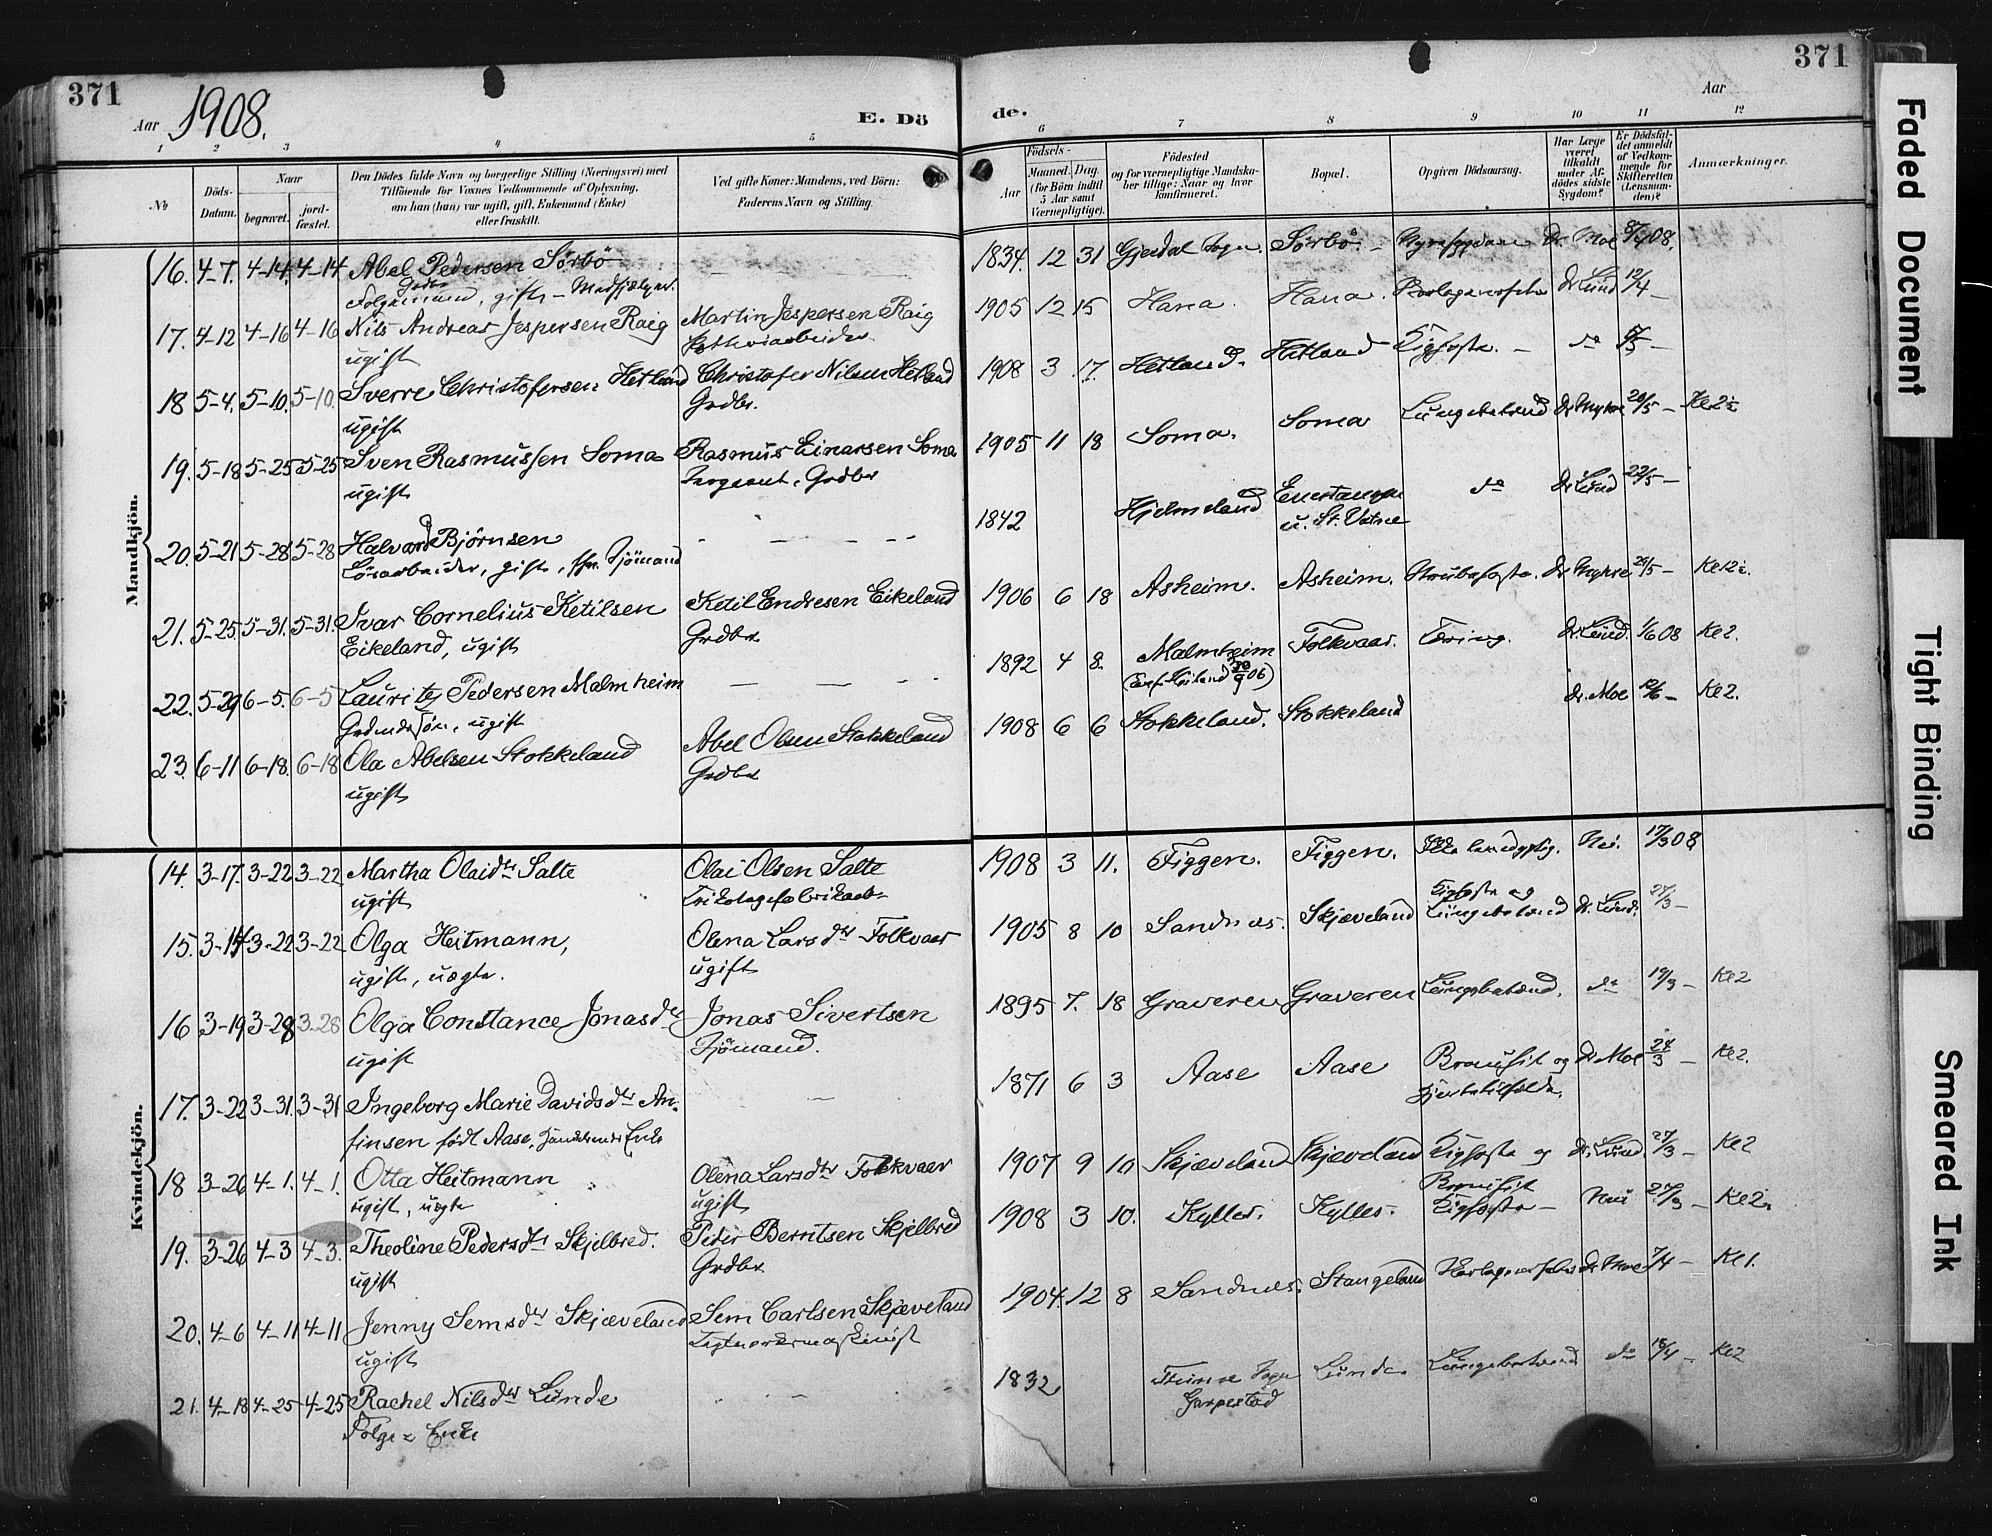 371
Aar 1908.
E. Dö
1 2 3 4 5
No
Döds-Datum.
Naar
begravet.
jord-fæstet.
Den Dödes fulde Navn og borgerlige Stilling (Næringsvei) med
Tilföiende for Voxnes Vedkommende af Oplysning,
om han (hun) var ugift, gift, Enkemand (Enke)
eller fraskilt.
Ved gifte Koner: Mandens, ved Börn:
Faderens Navn og Stilling.
Mandkjön.
16. 4-7. 4-14. 4-14. Abel Pedersen Sørbö
gift
17. 4-12 4-16 4-16 Nils Andreas Jespersen Raig Martin Jespersen Raig
ugift
18 5-4. 5-10. 5-10. Sverre Christofersen Hetland Christofer Nilsen Hetland
ugift Grdbr.
19. 5-18 5-25 5-25 Sven Rasmussen Soma Rasmus Einarsen Soma
ugift Sergeant, Grdbr
20. 5-21 5-28 5-28 Halvard Björnsen
Lösarbeider, gift, Sjömand
21. 5-25. 5-31. 5-31. Ivar Cornelius Ketilsen Ketil Endresen Eikeland
Eikeland, ugift Grdbr
22. 5-29 6-5. 6-5 Lauritz Pedersen Malmheim
ugift
23. 6-11 6-18. 6-18 Ola Abelsen Stokkeland Abel Olsen Stokkeland
ugift Grdbr
Kvindekjön.
14. 3-17. 3-22 3-22 Martha Olaidtr Salte Olai Olsen Salte
ugift
15. 3-22 3-22 Olga Heitmann, Olena Larsdtr Folkvaer
ugift, uægte. ugift
16 3-19 3-28 3-28 Olga Constance Jonasdtr Jonas Sivertsen
ugift Sjömand.
17. 3-22 3-31. 3-31 Ingeborg Marie Davidsdtr An-
finsen født Aase, Enke
18 3-26 4-1. 4-1. Otta Heitmann Olena Larsdtr Folkvaer
ugift, uægte ugift
19. 3-26 4-3 4-3. Theoline Pedersdtr Skjelbred. Peder Berntsen Skjelbred
ugift Grdbr
20. 4-6 4-11 4-11 Jenny Semsdtr Skjæveland Sem Carlsen Skjæveland
ugift
21. 4-18 4-25 4-25 Rachel Nilsdtr Lunde
Enke
371
Aar
de.
6 7 8 9 10 11 12
Födsels-
Aar
Maaned. Dag.
(for Börn indtil
5 Aar samt
Værnepligtige).
Födested
og for værnepligtige Mandska-
ber tillige: Naar og hvor
konfirmeret.
Bopæl.
Opgiven Dödsaarsag.
Har Læge
været
tilkaldt
under Af-
dödes sidste
Sygdom?
Er Dödsfal-
det anmeldt
af Vedkom-
mende for
Skifteretten
(Lensman-
den)?
Anmærkninger.
1834. 12 31 Gjesdal Sogn. Sørbö. Nyresygdom Dr. Moe 8/4 08.
1905 12 15 Hana. Hana. Dr Lund 12/4 -
1908 3 17. Hetland. Hetland Kighoste. - do 5/5 -
1905 11 18 Soma. Soma Lungebetænd 20/5 -
1842 Hjelmeland u. St. Vatne do Dr Lund 22/5 -
1906 6 18 Asheim. Asheim. Strubehoste. 29/5 -
1892 4 8. Malmheim Folkvaer. Tæring. Dr. Lund. 1/6 08 Kl 2.
1908 6 6 Stokkeland. Stokkeland Dr. Moe 12/6 - Kl 2.
1908 3 11. Figgen. Figgen. Nei. 17/3 08
1905 8 10 Sandnes. Skjæveland Kighoste og
Lungebetænd Dr. Lund.
1895 7. 18 Graveren Graveren Lungebetænd. do 19/3 - Kl 2
1871 6 3 Aase Aase Bronchit og Dr Moe 24/3 - Kl 2.
Hjertetilfælde.
1907 9 10 Skjæveland Skjæveland Kighoste og Dr. Lund 27/3 - Kl 2
Bronchit
1908 3 10. Kylles. Kylles. Kighoste - Nei 27/3 - Kl 2.
1904. 12 8 Sandnes. Stangeland Dr Moe 7/4 - Kl 1.
1832 Time Sogn Lunde. Lungebetænd do 18/4 - Kl 2
Garpestad
Faded Document
Tight Binding
Smeared Ink